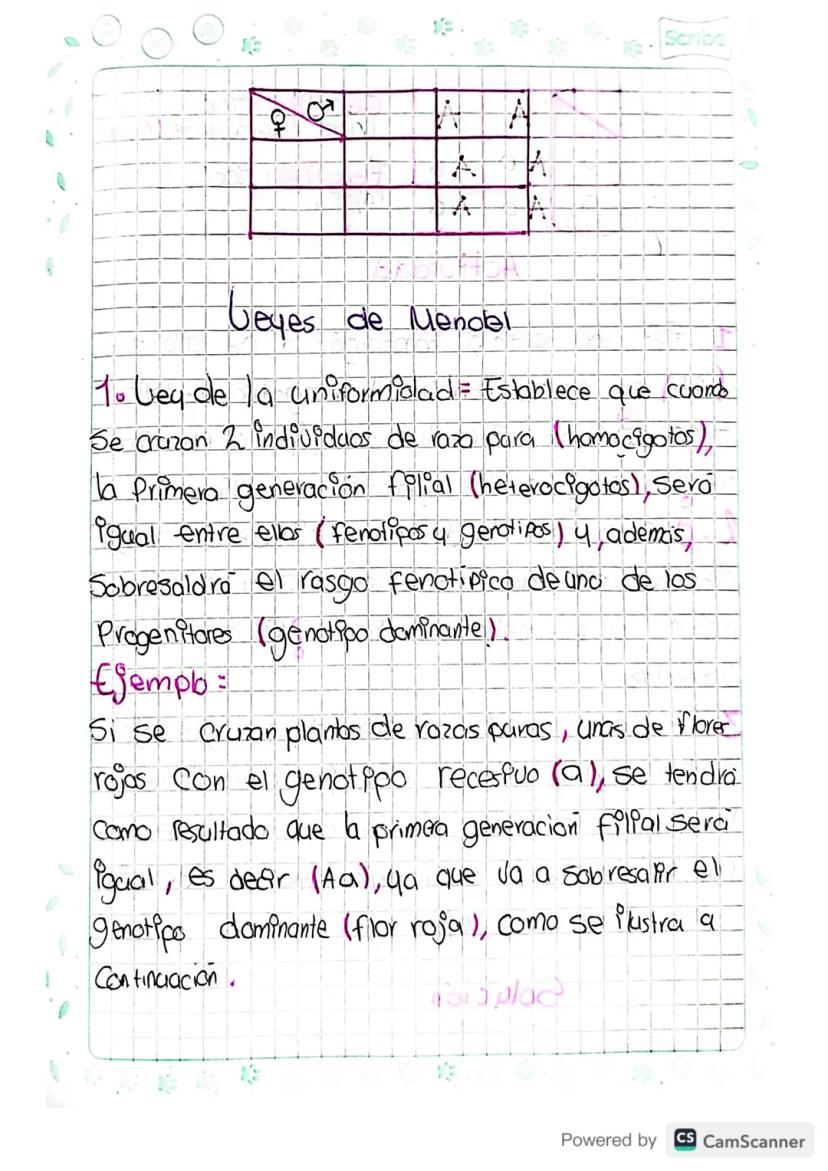 Scribe
♀ ♂ A A
A A
A A
Leyes de Mendel
1. Ley de la uniformidad = Establece que cuando
se cruzan 2 individuos de raza pura (homocigotos),
la Primera generación filial (heterocigotos), será
igual entre ellos (fenotipos y genotipos) y, además,
Sobresaldrá el rasgo fenotípico de uno de los
Progenitores (genotipo dominante).
Ejemplo:
Si se cruzan plantas de razas puras, unas de flores
rojas con el genotipo recesivo (a), se tendrá
como resultado que la primera generación filial será
igual, es decir (Aa), ya que va a sobresalir el
genotipo dominante (flor roja), como se ilustra a
Continuación.
Powered by CS CamScanner